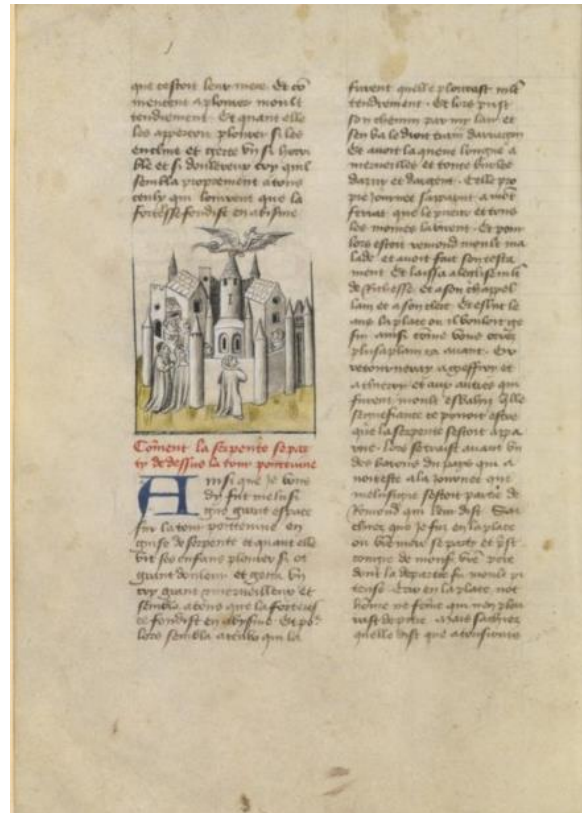 que cestoit leur mere. Et cō
mencent a plourer moult
tendrement. Et quant elle
les apperçoit plourer si les
encline et gecte vn si horri
ble et si douloureux cry quil
sembla proprement a tous
ceulx qui louirent que la
forteresse fondist en abisme
Cōment la serpente se par
ty de dessus la tour poitevine
Ainsi que je vous
dy fut melusi
gne grant espace
sur la tour poittevine en
guise de serpente et quant elle
vit ses enfans plourer si ot
grant douleur et gecta vn
cry grant et merueilleux et
sembla a tous que la forteres
se fondist en abysme. Et po
lors sembla a ceulx qui la
furent quelle plourast
tendrement. Et lors prist
son chemin par my lair et
sen va le droit
Et auoit la queue longue a
merueilles et toute burlee
dazur et dargent. Celle pro
pre journee sapparut a mōt
ferrat que le prieur et tous
les moines la virent. Et pour
lors estoit remond moult ma
lade et auoit fait son testa
ment. Et laissa a leglise
de richesse. Et a son chappel
lain et a son clerc. Et eslut le
ans la place ou il vouloit ge
sir ainsi cōme vous orrez
plus a plain ca auant. Or
retourneray a geffroy et
a thierry et aux autres qui
furent moult esbahiz quelle
segnefiance ce pouoit estre
que la serpente sestoit appa
rue. Lors se traist auant vn
des barons du pays qui a
uoit este a la journee que
melusigne sestoit partie de
Remond qui leur dist. Sai
chiez que je fu en la place
ou vr̄e mere se party et
compe de mons vr̄e pere
dont la departie fu moult pi
teuse. Et not
hōme ne fēme qui nen plou
rast de pitie. Mais sachiez
quelle dist que a tousiours